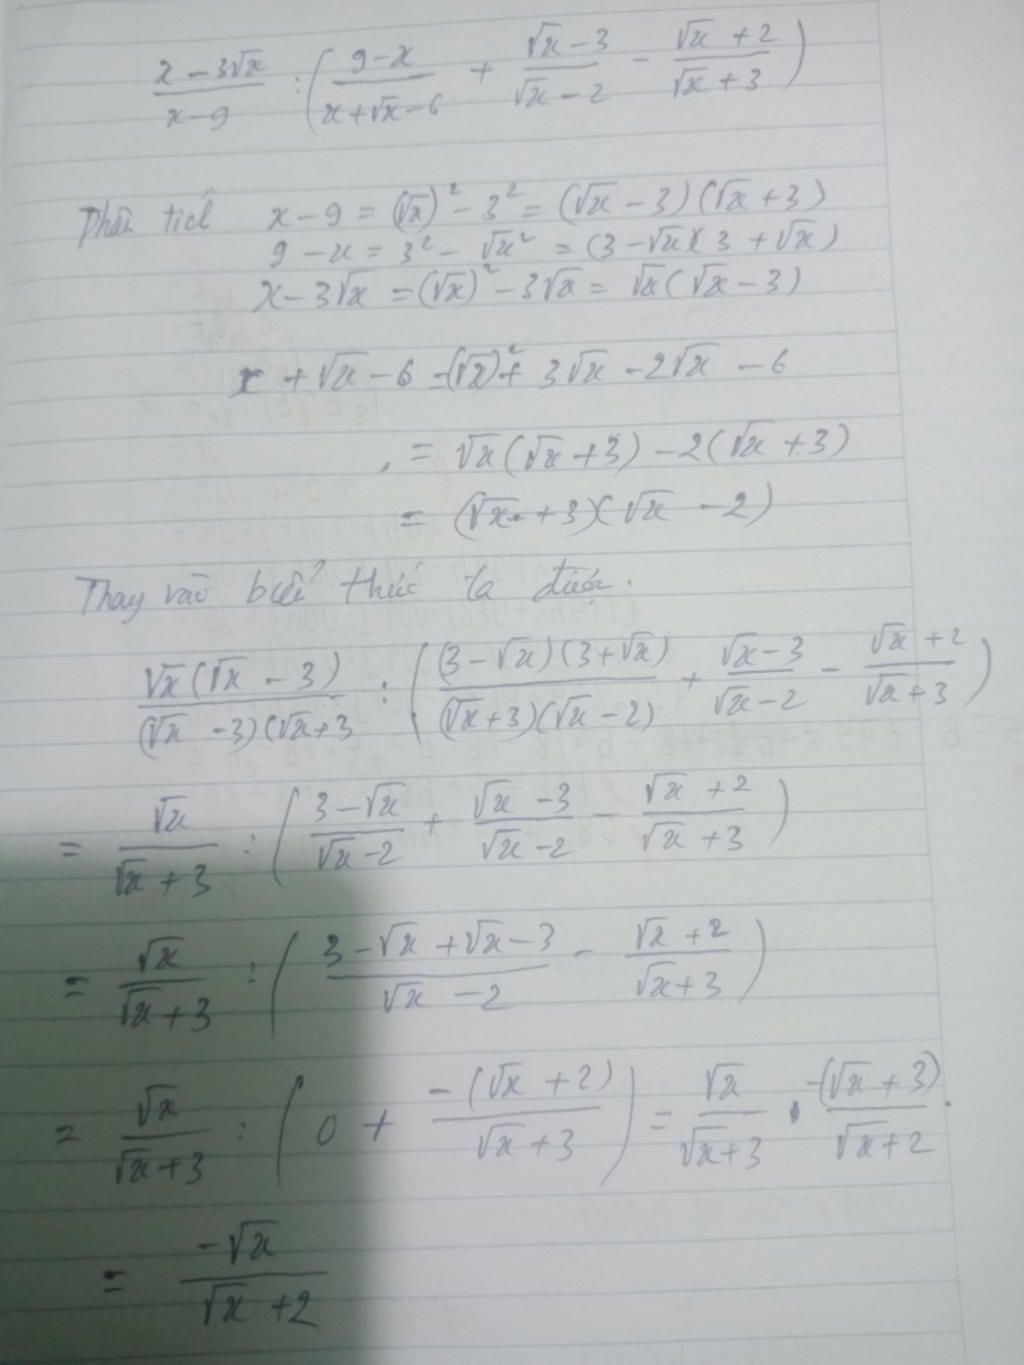 x-3√x / x-9 : (9-x / x+√x-6 + √x-3 / √x-2 - √x+2 / √x+3)
Phân tích x-9 = (√x)² - 3² = (√x-3)(√x+3)
9-x = 3² - √x² = (3-√x)(3+√x)
x-3√x = (√x)² - 3√x = √x(√x-3)
x+√x-6 = (√x)² + 3√x - 2√x - 6
= √x(√x+3) - 2(√x+3)
= (√x+3)(√x-2)
Thay vào biểu thức ta được.
√x(√x-3) / (√x-3)(√x+3 : ((3-√x)(3+√x) / (√x+3)(√x-2) + √x-3 / √x-2 - √x+2 / √x+3)
= √x / √x+3 : (3-√x / √x-2 + √x-3 / √x-2 - √x+2 / √x+3)
= √x / √x+3 : (3-√x+√x-3 / √x-2 - √x+2 / √x+3)
= √x / √x+3 : (0 + -(√x+2) / √x+3) = √x / √x+3 . -(√x+3) / √x+2 .
= -√x / √x+2